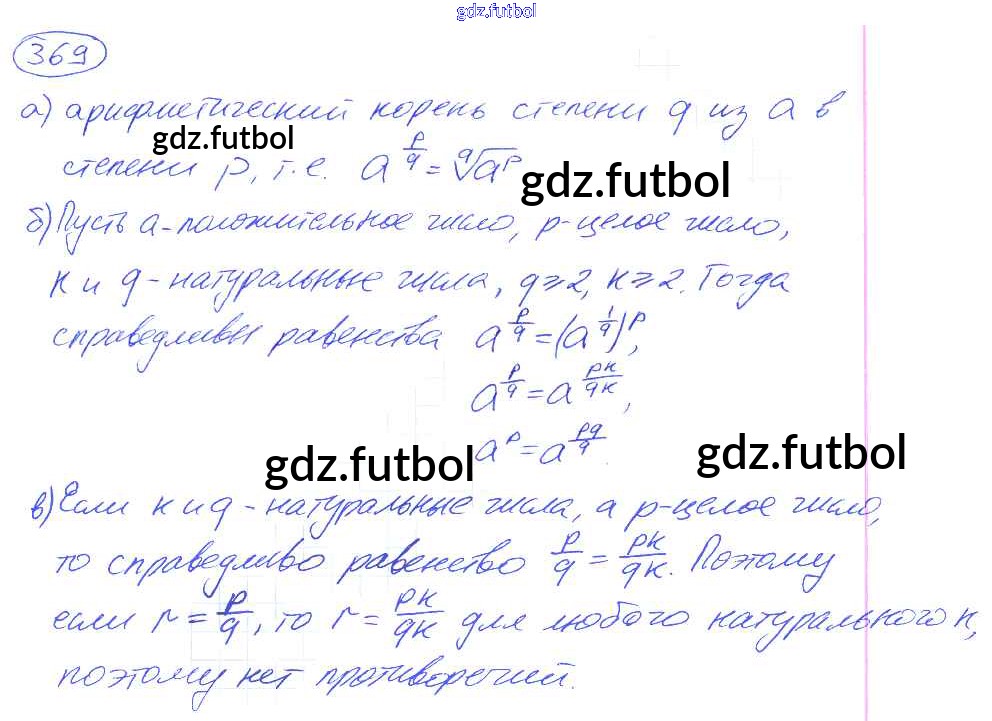 gdz.futbol
369
а) арифметический корень степени q из a в
gdz.futbol
степени p, т.е. a^(p/q) = ᑫ√(a^p)
gdz.futbol
б) Пусть a - положительное число, p - целое число,
к и q - натуральные числа, q ≥ 2, к ≥ 2. Тогда
справедливы равенства a^(p/q) = (a^(1/q))^p,
a^(p/q) = a^(pк/qк),
a^p = a^(pq/q).
gdz.futbol gdz.futbol
в) Если к и q - натуральные числа, а p - целое число,
то справедливо равенство p/q = pк/qк. Поэтому
если r = p/q, то r = pк/qк для любого натурального к,
поэтому нет противоречий.